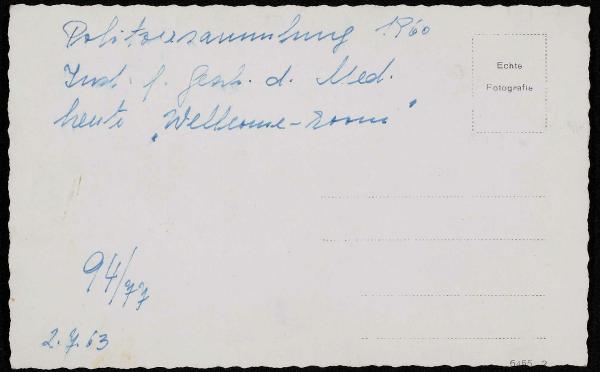 Politzersammlung 1960
Inst. f. Gesch. d. Med.
heute "Wellcome-room"
Echte
Fotografie
94/77
2.7.63